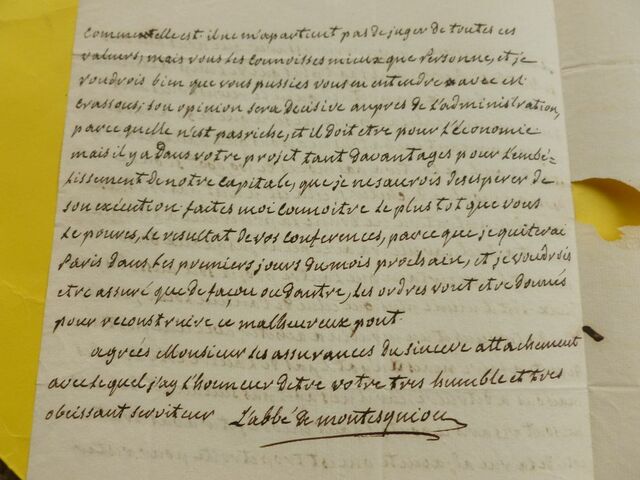 comme elle est il ne m'apartient pas de juger de toutes ces
valeurs; mais vous les connoisses mieux que Personne, et je
voudrois bien que vous pussies vous en entendre avec est
crassous; son opinion sera decisive aupres de l'administration,
parce quelle n'est pas riche, et il doit etre pour l'économie
mais il y a dans votre projet tant davantages pour l'embé-
lissement de notre capitale, que je ne saurois desespérer de
son exécution faites moi connoitre le plus tot que vous
le pourés, le resultat de vos conferences, parce que je quiterai
Paris dans les premiers jours du mois prochain, et je voudrois
etre assuré que de façon ou dautre, les ordres vont etre donnés
pour reconstruire ce malheureux pont
agrées Monsieur les assurances du sincere attachement
avec lequel j'ay l'honneur detre votre tres humble et tres
obeissant serviteur L'abbé de montesquiou